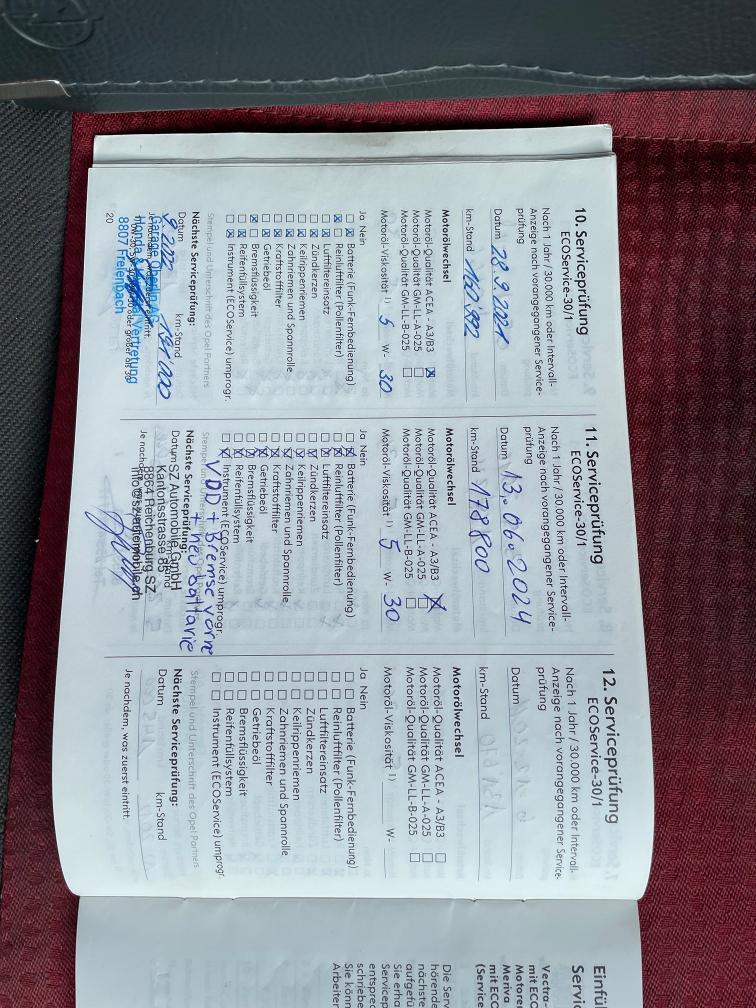 10. Serviceprüfung
ECOService-30/1
Nach 1 Jahr / 30.000 km oder Intervall-
Anzeige nach vorangegangener Service-
prüfung
Datum 28.9.2021
km-Stand 160'992
Motorölwechsel
Motoröl-Qualität ACEA - A3/B3
Motoröl-Qualität GM-LL-A-025
Motoröl-Qualität GM-LL-B-025
Motoröl-Viskosität 1) 5 W- 30
Ja Nein
Batterie (Funk-Fernbedienung)
Reinluftfilter (Pollenfilter)
Luftfiltereinsatz
Zündkerzen
Keilrippenriemen
Zahnriemen und Spannrolle
Kraftstofffilter
Getriebeöl
Bremsflüssigkeit
Reifenfüllsystem
Instrument (ECOService) umprogr.
Stempel und Unterschrift des Opel Partners
Nächste Serviceprüfung:
Datum km-Stand
9.2022 191'000
Garage Oberlin AG
Honda Vertretung
8807 Freienbach
20
11. Serviceprüfung
ECOService-30/1
Nach 1 Jahr / 30.000 km oder Intervall-
Anzeige nach vorangegangener Service-
prüfung
Datum 13.06.2024
km-Stand 178800
Motorölwechsel
Motoröl-Qualität ACEA - A3/B3
Motoröl-Qualität GM-LL-A-025
Motoröl-Qualität GM-LL-B-025
Motoröl-Viskosität 1) 5 W- 30
Ja Nein
Batterie (Funk-Fernbedienung)
Reinluftfilter (Pollenfilter)
Luftfiltereinsatz
Zündkerzen
Keilrippenriemen
Zahnriemen und Spannrolle
Kraftstofffilter
Getriebeöl
Bremsflüssigkeit
Reifenfüllsystem
Instrument (ECOService) umprogr.
VDD + Bremse vorne
+ neu battarie
Nächste Serviceprüfung:
Datum
SZ Automobile GmbH
Kantonsstrasse 88
8864 Reichenburg SZ
Je nachdem
12. Serviceprüfung
ECOService-30/1
Nach 1 Jahr / 30.000 km oder Intervall-
Anzeige nach vorangegangener Service-
prüfung
Datum
km-Stand
Motorölwechsel
Motoröl-Qualität ACEA - A3/B3
Motoröl-Qualität GM-LL-A-025
Motoröl-Qualität GM-LL-B-025
Motoröl-Viskosität 1) W-
Ja Nein
Batterie (Funk-Fernbedienung)
Reinluftfilter (Pollenfilter)
Luftfiltereinsatz
Zündkerzen
Keilrippenriemen
Zahnriemen und Spannrolle
Kraftstofffilter
Getriebeöl
Bremsflüssigkeit
Reifenfüllsystem
Instrument (ECOService) umprogr.
Stempel und Unterschrift des Opel Partners
Nächste Serviceprüfung:
Datum km-Stand
Je nachdem, was zuerst eintritt.
Einfü
Servi
Vectra-
mit ECO
Motore
Meriva
mit ECC
(Service
Die Serv
hörende
nächste
aufgefü
Sie erha
Servicep
entsprec
schriebe
Sie könn
Arbeiter